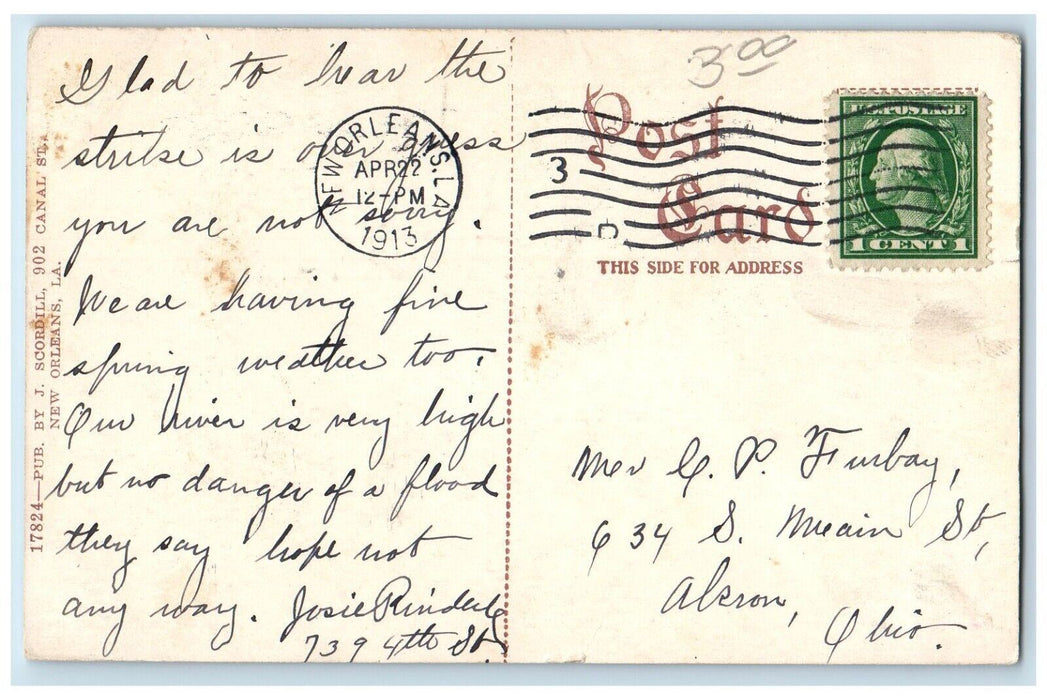 Glad to hear the
strike is over guess
you are not sorry.
We are having fine
spring weather too.
Our river is very high
but no danger of a flood
they say hope not
any way. Josie
739 4th St.
17824—PUB. BY J. SCORDILL, 902 CANAL ST.,
NEW ORLEANS, LA.
NEW ORLEANS, LA.
APR 22
12-PM
1913
3
D
3 00
Post
Card
THIS SIDE FOR ADDRESS
U.S. POSTAGE
1 CENT 1
C. P. Furbay,
634 S. Main St,
Akron,
Ohio.